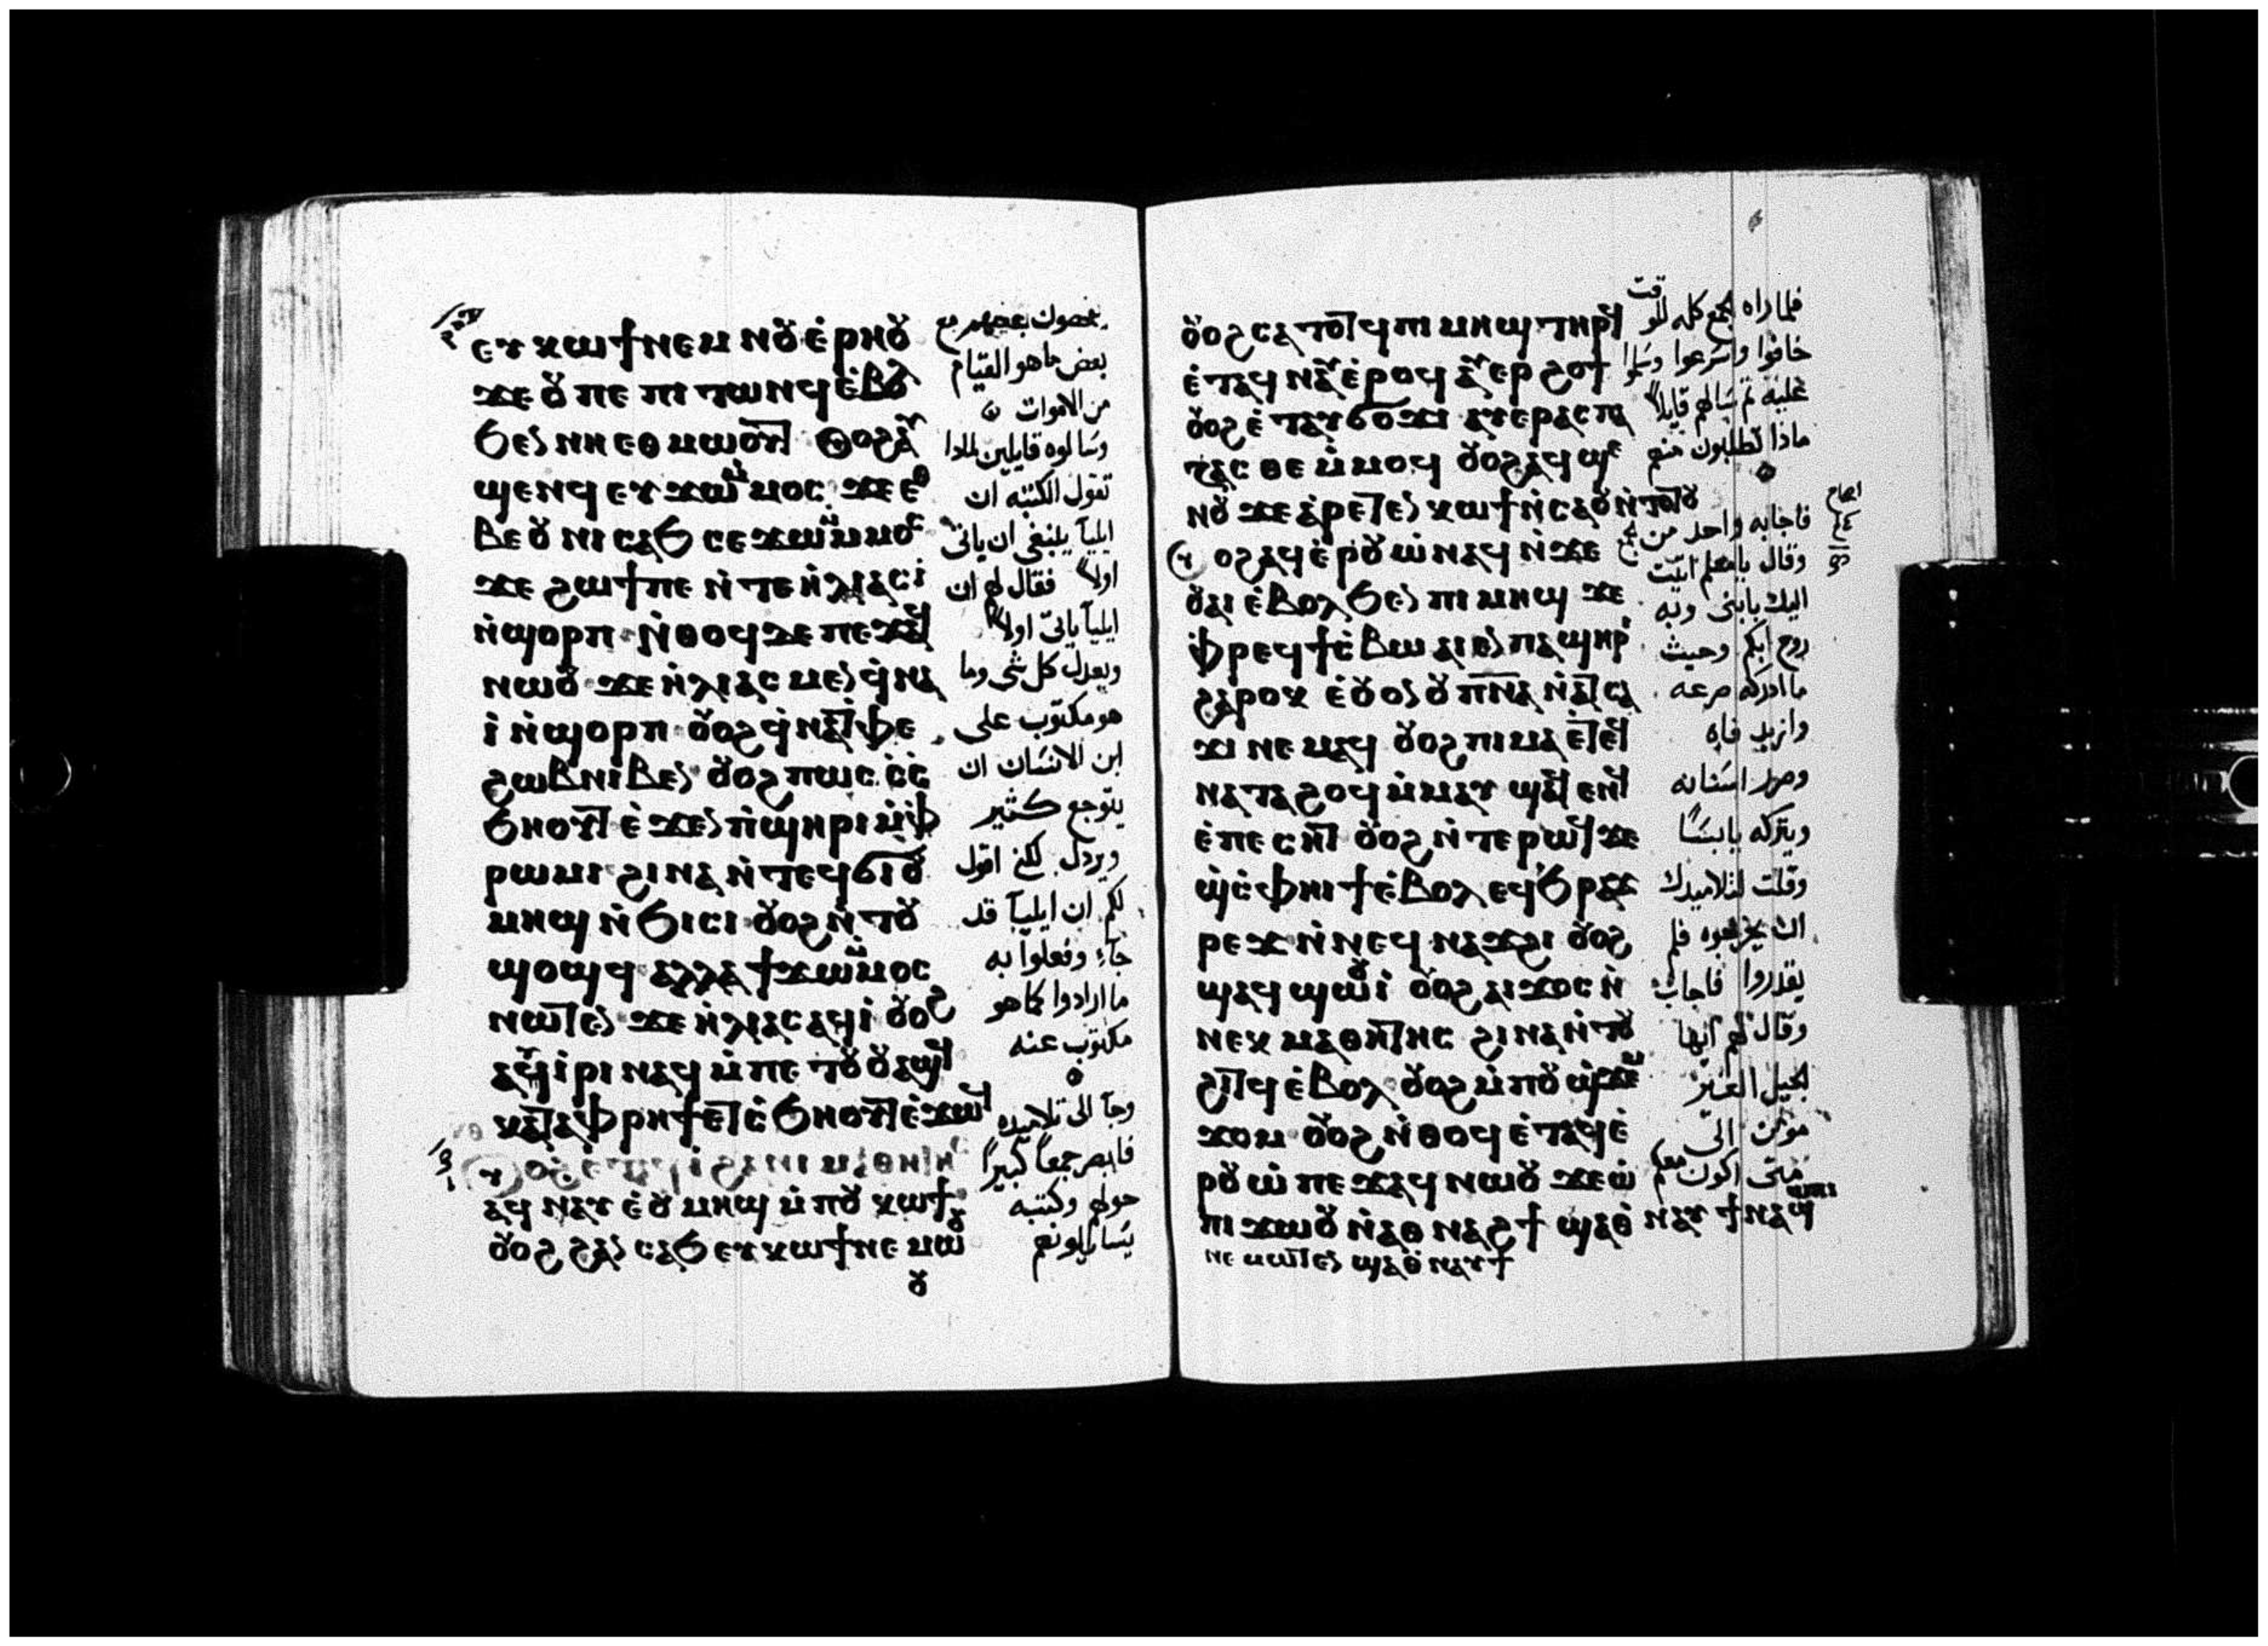 ⲉⲩⲕⲱϯ ⲛⲉⲙ ⲛⲟⲩⲉⲣⲏⲟⲩ
ϫⲉ ⲟⲩ ⲡⲉ ⲡⲓⲧⲱⲛϥ ⲉⲃⲟⲗ
ϧⲉⲛ ⲛⲏⲉⲑⲙⲱⲟⲩⲧ ⲟⲩⲟϩ ⲁⲩ
ϣⲉⲛϥ ⲉⲩϫⲱ ⲙⲙⲟⲥ ϫⲉ ⲉⲑ
ⲃⲉ ⲟⲩ ⲛⲓⲥⲁϧ ⲥⲉϫⲱ ⲙⲙⲟⲥ
ϫⲉ ϩⲱϯ ⲡⲉ ⲛⲧⲉ ⲏⲗⲓⲁⲥ ⲓ
ⲛϣⲟⲣⲡ ⲛⲑⲟϥ ⲇⲉ ⲡⲉϫⲁϥ
ⲛⲱⲟⲩ ϫⲉ ⲏⲗⲓⲁⲥ ⲙⲉⲛ ϥⲛⲁ
ⲓ ⲛϣⲟⲣⲡ ⲟⲩⲟϩ ϥⲛⲁⲧⲫⲉ
ϩⲱⲃ ⲛⲓⲃⲉⲛ ⲟⲩⲟϩ ⲡⲱⲥ ⲥ
ⲥϧⲏⲟⲩⲧ ⲉϫⲉⲛ ⲡϣⲏⲣⲓ ⲙⲫ
ⲣⲱⲙⲓ ϩⲓⲛⲁ ⲛⲧⲉϥϭⲓ ⲟⲩ
ⲙⲏϣ ⲛϧⲓⲥⲓ ⲟⲩⲟϩ ⲛⲧⲟⲩ
ϣⲟϣϥ ⲁⲗⲗⲁ ϯϫⲱ ⲙⲙⲟⲥ
ⲛⲱⲧⲉⲛ ϫⲉ ⲏⲗⲓⲁⲥ ⲁϥⲓ ⲟⲩⲟϩ
ⲁⲩⲓⲣⲓ ⲛⲁϥ ⲙⲡⲉⲧⲟⲩⲟⲩⲁϣϥ
ⲕⲁⲧⲁ ⲫⲣⲏϯ ⲉⲧⲥϧⲏⲟⲩⲧ ⲉϫⲱϥ
ⲟⲩⲟϩ ⲉⲧⲁϥⲓ ϩⲁ ⲛⲓⲙⲁⲑⲏⲧⲏⲥ
ⲁϥⲛⲁⲩ ⲉⲟⲩⲙⲏϣ ⲙⲡⲟⲩⲕⲱϯ
ⲟⲩⲟϩ ϩⲁⲛⲥⲁϧ ⲉⲩⲕⲱϯ ⲛⲉⲙⲱ
ⲟⲩ
بعضهم مع
بعض ما هو القيام
من الاموات
وسالوه قايلين لمادا
تقول الكتبه ان
ايليا ينبغي ان ياتي
اولا فقال لهم ان
ايليا ياتي اولا
ويعدل كل شي وما
هو مكتوب على
ابن الانسان ان
يتوجع كثير
ويردل لكني اقول
لكم ان ايليا قد
جاء وفعلوا به
ما ارادوا كما هو
مكتوب عنه
وجا الى تلاميده
فابصر جمعا كبيرا
حولهم وكتبه
يسايلونهم
ⲟⲩⲟϩ ⲥⲁⲧⲟⲧϥ ⲡⲓⲙⲏϣ ⲧⲏⲣϥ
ⲉⲧⲁⲩⲛⲁⲩ ⲉⲣⲟϥ ⲁⲩⲉⲣϩⲟϯ
ⲟⲩⲟϩ ⲉⲧⲁⲩϭⲟϫⲓ ⲁⲩⲉⲣⲁⲥⲡⲁ
ⲍⲉⲥⲑⲉ ⲙⲙⲟϥ ⲟⲩⲟϩ ⲁϥϣⲉ
ⲛⲟⲩ ϫⲉ ⲁⲣⲉⲧⲉⲛⲕⲱϯ ⲛⲥⲁ ⲟⲩ ⲛⲧⲟⲧⲟⲩ
ⲟⲩⲟϩ ⲁϥⲉⲣⲟⲩⲱ ⲛⲁϥ ⲛϫⲉ
ⲟⲩⲁⲓ ⲉⲃⲟⲗ ϧⲉⲛ ⲡⲓⲙⲏϣ ϫⲉ
ⲫⲣⲉϥϯⲥⲃⲱ ⲁⲓⲉⲛ ⲡⲁϣⲏⲣⲓ
ϩⲁⲣⲟⲕ ⲉⲟⲩⲟⲛ ⲟⲩⲡⲛⲁ ⲛⲁⲧⲥⲁ
ϫⲓ ⲛⲉⲙⲁϥ ⲟⲩⲟϩ ⲡⲓⲙⲁ ⲉⲧⲉϥ
ⲛⲁⲧⲁϩⲟϥ ⲙⲙⲁⲩ ϣⲁϥⲉⲛϥ
ⲉⲡⲉⲥⲏⲧ ⲟⲩⲟϩ ⲛⲧⲉⲣⲱϥ ϫⲉ
ϣⲥⲫⲏⲓϯ ⲉⲃⲟⲗ ⲉϥϧⲣⲁϫ
ⲣⲉϫ ⲛⲛⲉϥⲛⲁϫϩⲓ ⲟⲩⲟϩ
ϣⲁϥϣⲱⲟⲩⲓ ⲟⲩⲟϩ ⲁⲓϫⲟⲥ ⲛ
ⲛⲉⲕⲙⲁⲑⲏⲧⲏⲥ ϩⲓⲛⲁ ⲛⲧⲟⲩ
ϩⲓⲧϥ ⲉⲃⲟⲗ ⲟⲩⲟϩ ⲙⲡⲟⲩϣϫⲉⲙ
ϫⲟⲙ ⲟⲩⲟϩ ⲛⲑⲟϥ ⲉⲧⲁϥⲉ
ⲣⲟⲩⲱ ⲡⲉϫⲁϥ ⲛⲱⲟⲩ ϫⲉ ⲱ
ⲡⲓϫⲱⲟⲩ ⲛⲁⲑⲛⲁϩϯ ϣⲁⲑⲛⲁⲩ ϯⲛⲁϣⲱⲡⲓ
ⲛⲉⲙⲱⲧⲉⲛ ϣⲁⲑⲛⲁⲩ ϯ
فلما راه الجمع كله للوقت
خافوا واسرعوا وسلموا
عليه ثم سالهم قايلا
ماذا تطلبون منهم
فاجابه واحد من الجمع
وقال يا معلم اتيت
اليك بابني وبه
روح ابكم وحيث
ما ادركه صرعه
وازبد فاه
وصرر اسنانه
ويتركه يابسا
وقلت لتلاميدك
ان يخرجوه فلم
يقدروا فاجاب
وقال لهم ايها
الجيل الغير
مومن الى
متى اكون معكم